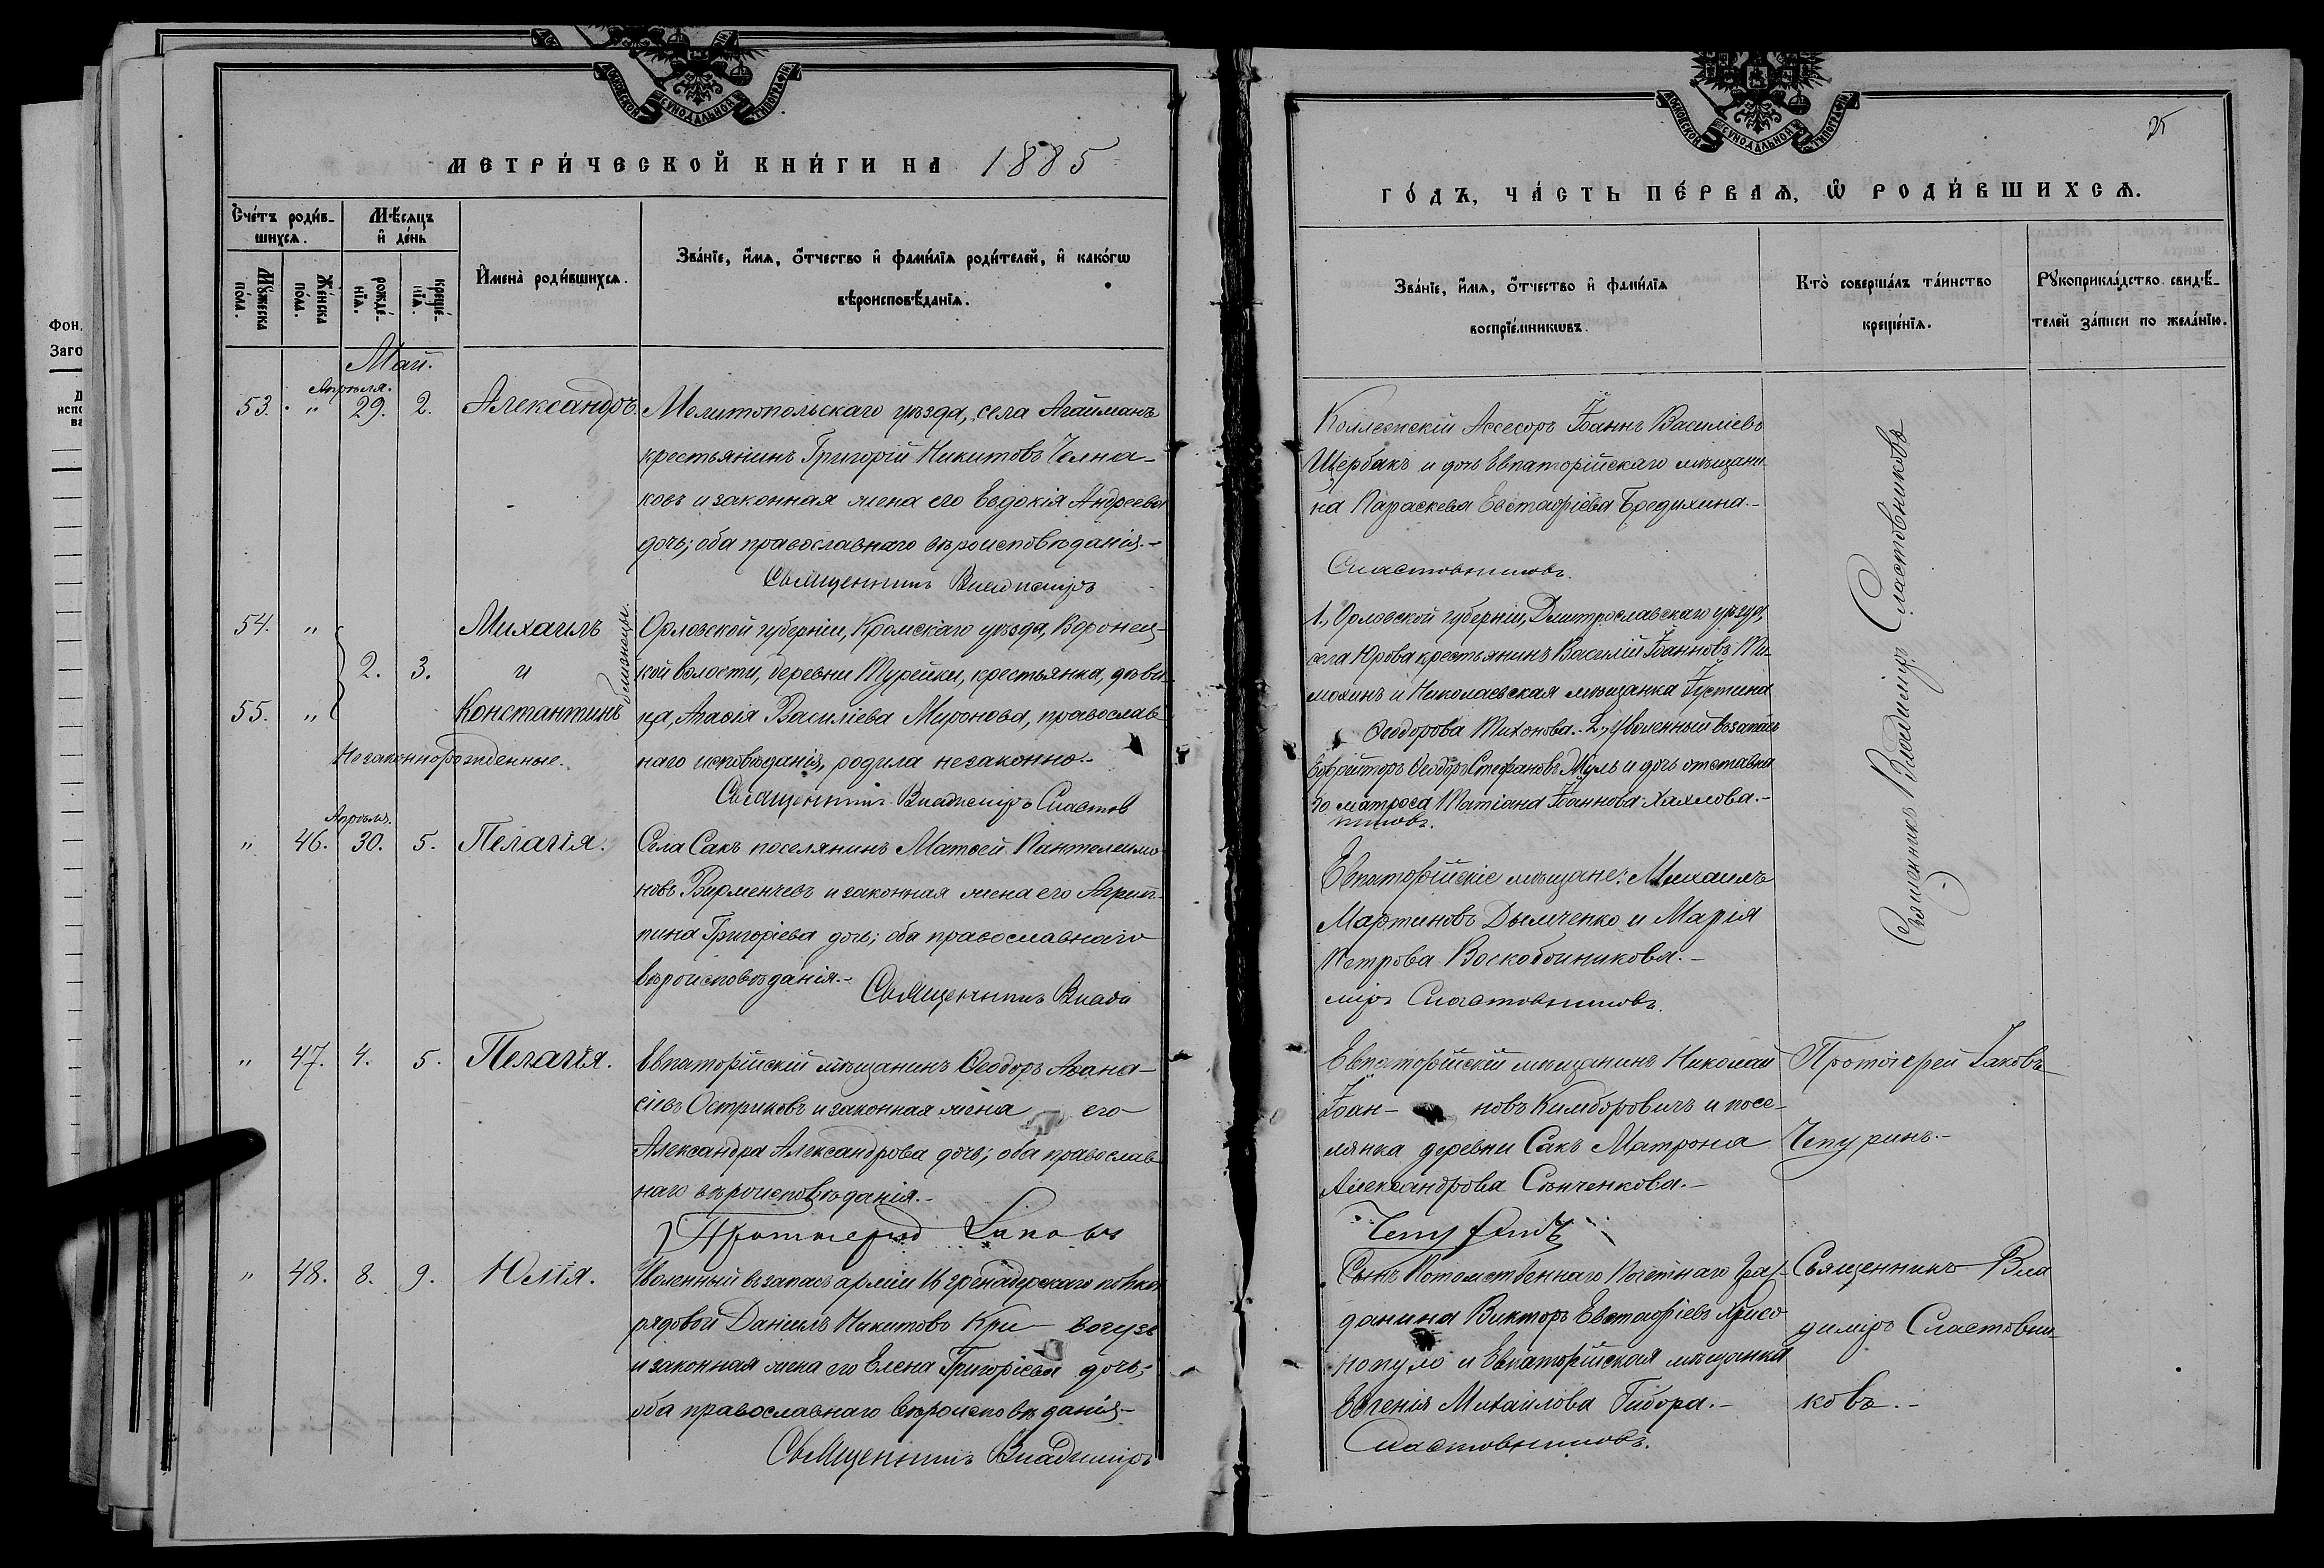 МЕТРИ́ЧЕСКОЙ КНИ́ГИ НА 1885
Сче́тъ роди́в-
шихсѧ.
Мѣ́сѧцъ
и҆ де́нь
Мꙋ́жеска
по́ла.
Же́нска
по́ла.
рожде́-
нїѧ.
креще́-
нїѧ.
И҆мена̀ роди́вшихсѧ.
Зва́нїе, и҆́мѧ, ѻ҆́тчество и҆ фами́лїѧ роди́телей, и҆ како́гѡ
вѣроисповѣ́данїѧ.
Май.
Апрѣля.
53. " 29. 2. Александръ.
Мелитопольскаго уѣзда, села Агайманъ
крестьянинъ Григорій Никитовъ Челна-
ковъ и законная жена его Евдокія Андреева
дочь; оба православнаго вѣроисповѣданія.-
Священникъ Владиміръ
54. " Михаилъ
2. 3. и
55. " Константинъ
близнецы.
Незаконнорожденные.
Орловской губерніи, Кромскаго уѣзда, Воронец-
кой волости, деревни Турейки, крестьянка, дѣви-
ца, Агаѳія Василіева Миронова, православ-
наго исповѣданія, родила незаконно.-
Священникъ Владиміръ Сластов
Апрѣль.
" 46. 30. 5. Пелагія.
Села Сакъ поселянинъ Матѳей Пантелеимо-
новъ Бирменчевъ и законная жена его Агрип-
пина Григоріева дочь; оба православнаго
вѣроисповѣданія.-
Священникъ Влади
" 47. 4. 5. Пелагія.
Евпаторійскій мѣщанинъ Ѳеодоръ Аѳана-
сіевъ Остриковъ и законная жена его
Александра Александрова дочь; оба православ-
наго вѣроисповѣданія.-
Протоіерей Іаковъ
" 48. 8. 9. Юлія.
Уволенный въ запасъ арміи 16 гренадерскаго полка
рядовой Даніилъ Никитовъ Кри- вогузъ
и законная жена его Елена Григоріева дочь;
оба православнаго вѣроисповѣданія-
Священникъ Владиміръ
25
ГО́ДЪ, ЧА́СТЬ ПЕ́РВАѦ, Ѽ РОДИ́ВШИХСѦ.
Зва́нїе, и҆́мѧ, ѻ҆́тчество и҆ фами́лїѧ
воспрїе́мникѡвъ.
Кто̀ соверша́лъ та́инство
креще́нїѧ.
Рꙋкоприкла́дство свидѣ́-
телей за́писи по жела́нїю.
Коллежскій Ассесоръ Іоаннъ Василіевъ
Щербакъ и дочь Евпаторійскаго мѣщани-
на Параскева Евстафіева Бредихина.-
Сластовниковъ.
1., Орловской губерніи, Дмитрославскаго уѣзда,
села Юрова крестьянинъ Василій Іоанновъ Ти-
мохинъ и Николаевская мѣщанка Іустина
Ѳеодорова Тихонова.- 2., Уволенный въ запасъ
Ефрейторъ Ѳеодоръ Стефановъ Муль и дочь отставна-
го матроса Татіана Іоаннова Хахлова.-
никовъ.
Евпаторійскіе мѣщане: Михаилъ
Мартиновъ Дымченко и Марія
Петрова Воскобойникова.-
міръ Сластовниковъ.
Священникъ Владиміръ Сластовниковъ
Евпаторійскій мѣщанинъ Николай
Іоан- новъ Кимборовичъ и посе-
лянка деревни Сакъ Матрона
Александрова Сѣнченкова.-
Чепуринъ
Протоіерей Іаковъ
Чепуринъ.-
Сынъ Потомственнаго Почетнаго Граж-
данина Викторъ Евстафіевъ Хрисо
популо и Евпаторійская мѣщанка
Евгенія Михайлова Гибора.-
Сластовниковъ.
Священникъ Вла
диміръ Сластовни-
ковъ.-
МОСКОВСКОЙ СѴНОДАЛЬНОЙ ТИПОГРАФІИ
МОСКОВСКОЙ СѴНОДАЛЬНОЙ ТИПОГРАФІИ
Фон.
Заго